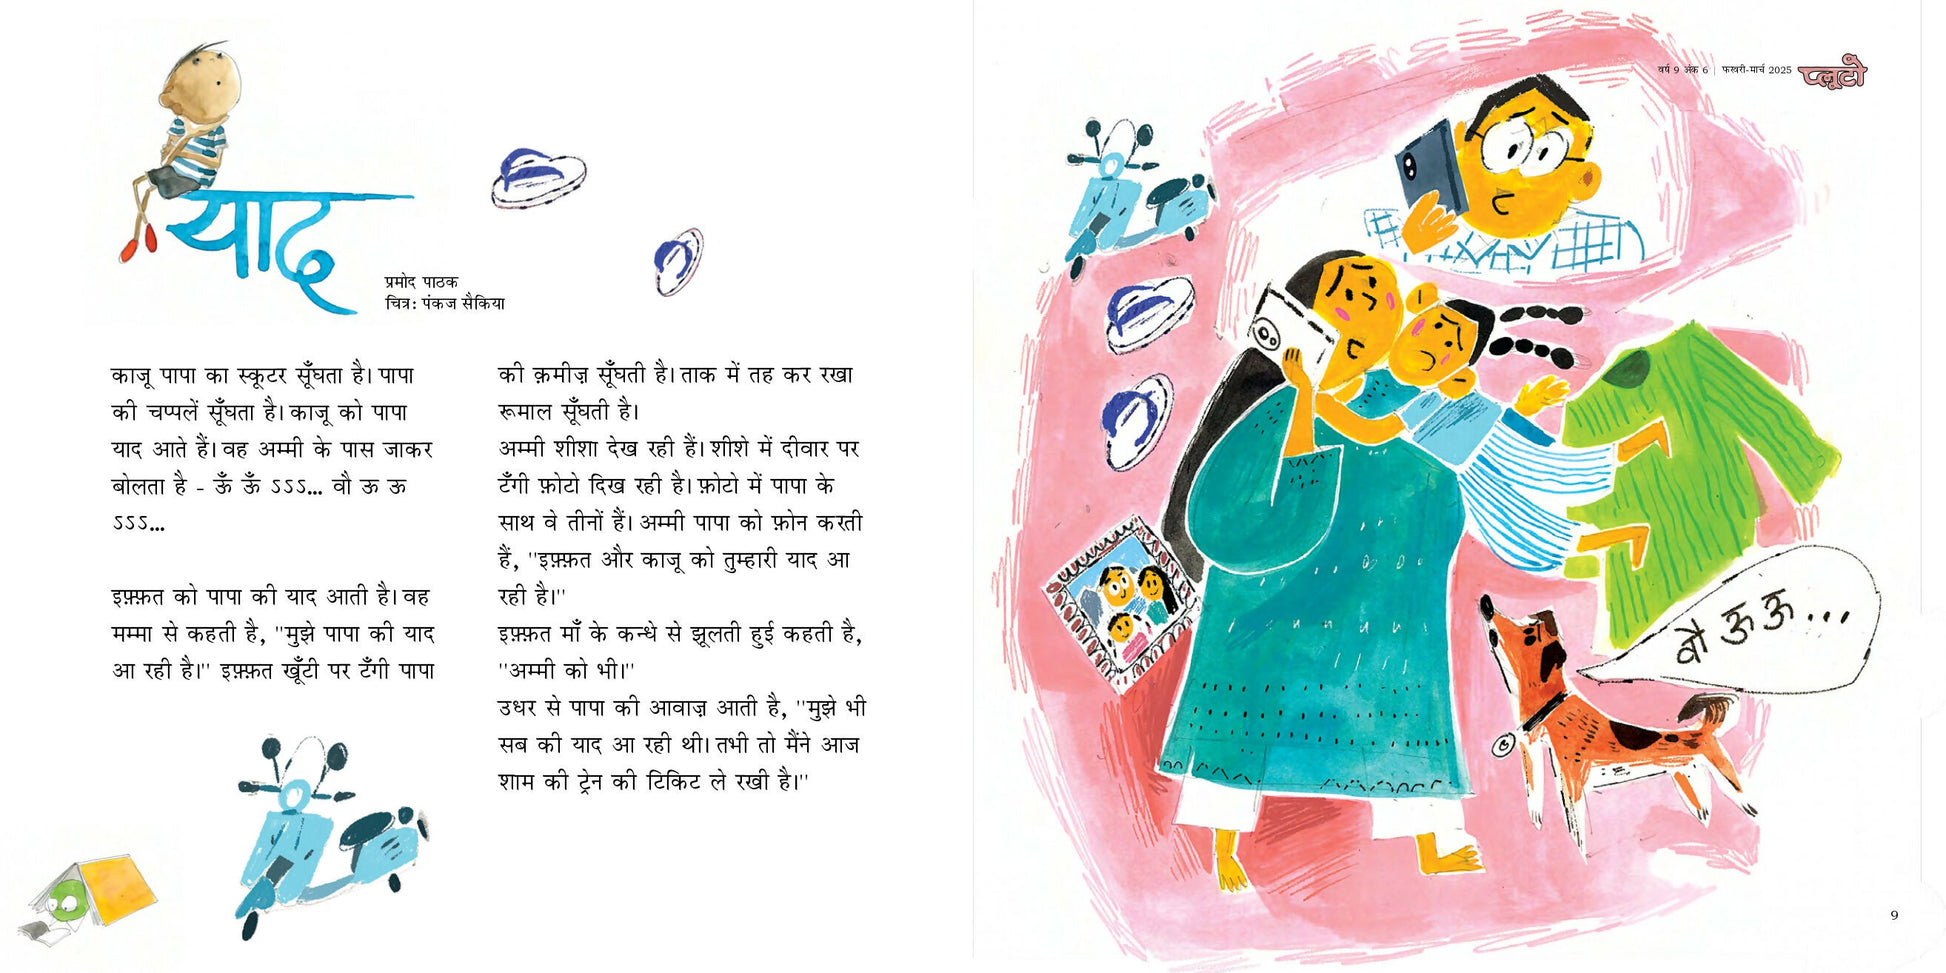 याद
प्रमोद पाठक
चित्र: पंकज सैकिया
काजू पापा का स्कूटर सूँघता है। पापा
की चप्पलें सूँघता है। काजू को पापा
याद आते हैं। वह अम्मी के पास जाकर
बोलता है - ऊँ ऊँ ऽऽऽ... वौ ऊ ऊ
ऽऽऽ...
इफ़्फ़त को पापा की याद आती है। वह
मम्मा से कहती है, "मुझे पापा की याद
आ रही है।" इफ़्फ़त खूँटी पर टँगी पापा
की क़मीज़ सूँघती है। ताक में तह कर रखा
रूमाल सूँघती है।
अम्मी शीशा देख रही हैं। शीशे में दीवार पर
टँगी फ़ोटो दिख रही है। फ़ोटो में पापा के
साथ वे तीनों हैं। अम्मी पापा को फ़ोन करती
हैं, "इफ़्फ़त और काजू को तुम्हारी याद आ
रही है।"
इफ़्फ़त माँ के कन्धे से झूलती हुई कहती है,
"अम्मी को भी।"
उधर से पापा की आवाज़ आती है, "मुझे भी
सब की याद आ रही थी। तभी तो मैंने आज
शाम की ट्रेन की टिकिट ले रखी है।"
वर्ष 9 अंक 6 | फरवरी-मार्च 2025 प्लूटो
वौ ऊ ऊ...
9